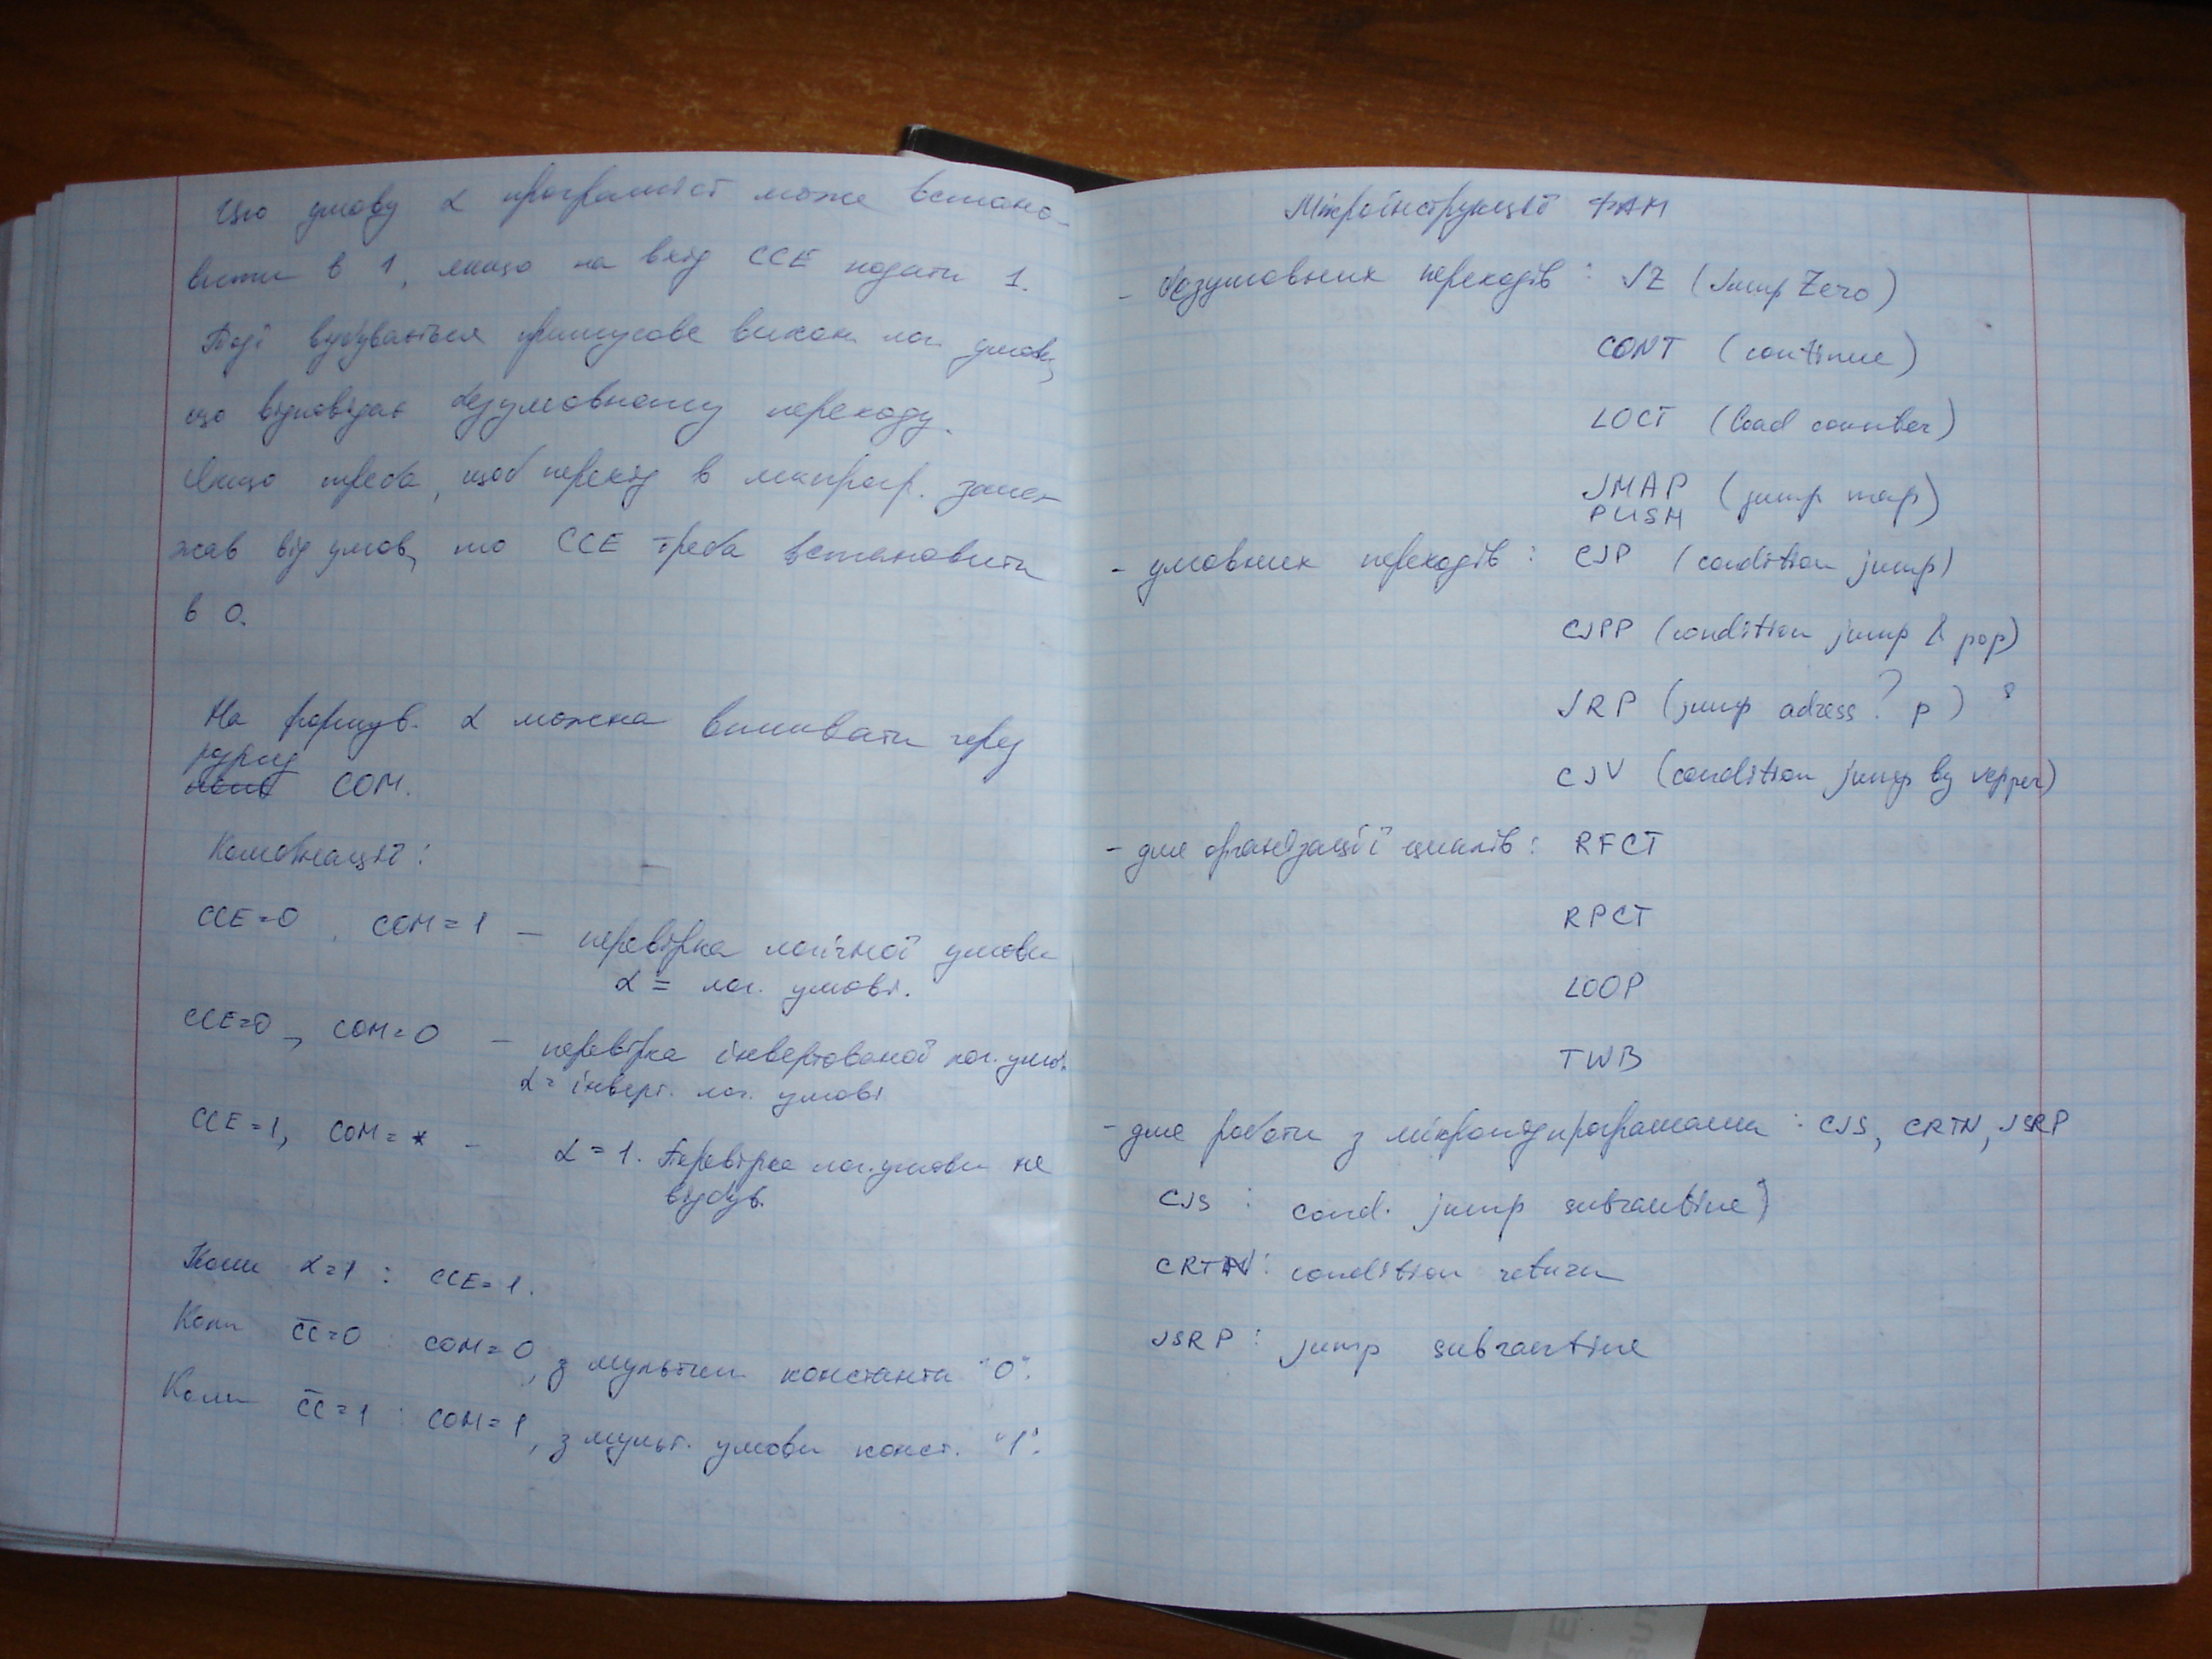 Цю умову α програміст може встано-
вити в 1, якщо на вхід CCE подати 1.
Тоді відбувається примусове викон. лог. умови,
що відповідає безумовному переходу.
Якщо треба, щоб перехід в мікрогр. залеж
жав від умов, то CCE треба встановити
в 0.
На формув. α можна впливати через
розряд
COM.
Комбінації:
CCE=0, COM=1 — перевірка логічної умови
α = лог. умові.
CCE=0, COM=0 — перевірка інвертованої лог. умов.
α = інверт. лог. умові
CCE=1, COM=* — α=1. Перевірка лог. умови не
відбув.
Коли α=1 : CCE=1.
Коли C̅C̅=0 : COM=0, з мультип. константи "0".
Коли C̅C̅=1 : COM=1, з мульт. умови конст. "1".
Мікроінструкції ФАМ
- безумовних переходів : JZ (Jump Zero)
CONT (continue)
LOCT (load counter)
JMAP (jump map)
PUSH
- умовних переходів : CJP (condition jump)
CJPP (condition jump & pop)
JRP (jump adress ? p) ?
CJV (condition jump by vepper)
- для організації циклів : RFCT
RPCT
LOOP
TWB
- для роботи з мікропідпрограмами : CJS, CRTN, JSRP
CJS : cond. jump subrautine)
CRTN : condition return
JSRP : jump subrautine
TE